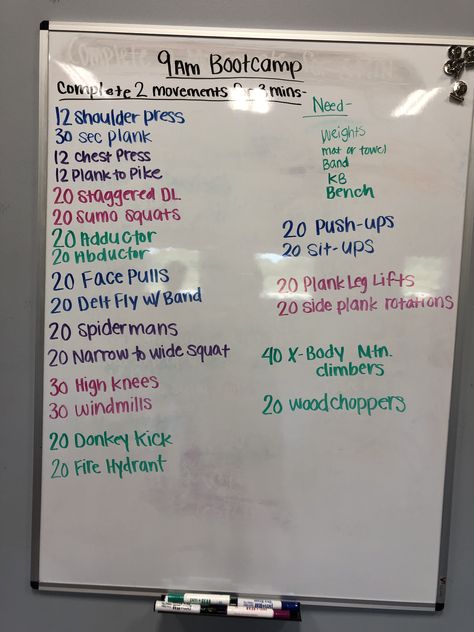 9 Am Bootcamp
Complete 2 movements mins-
12 Shoulder press
30 sec plank
12 Chest Press
12 Plank to Pike
20 Staggered DL
20 Sumo squats
20 Adductor
20 Abductor
20 Face Pulls
20 Delt Fly w/ Band
20 Spidermans
20 Narrow to wide squat
30 High knees
30 Windmills
20 Donkey Kick
20 Fire Hydrant
Need-
Weights
mat or towel
Band
KB
Bench
20 Push-ups
20 Sit-ups
20 Plank Leg Lifts
20 Side plank rotations
40 X-Body Mtn.
climbers
20 Woodchoppers